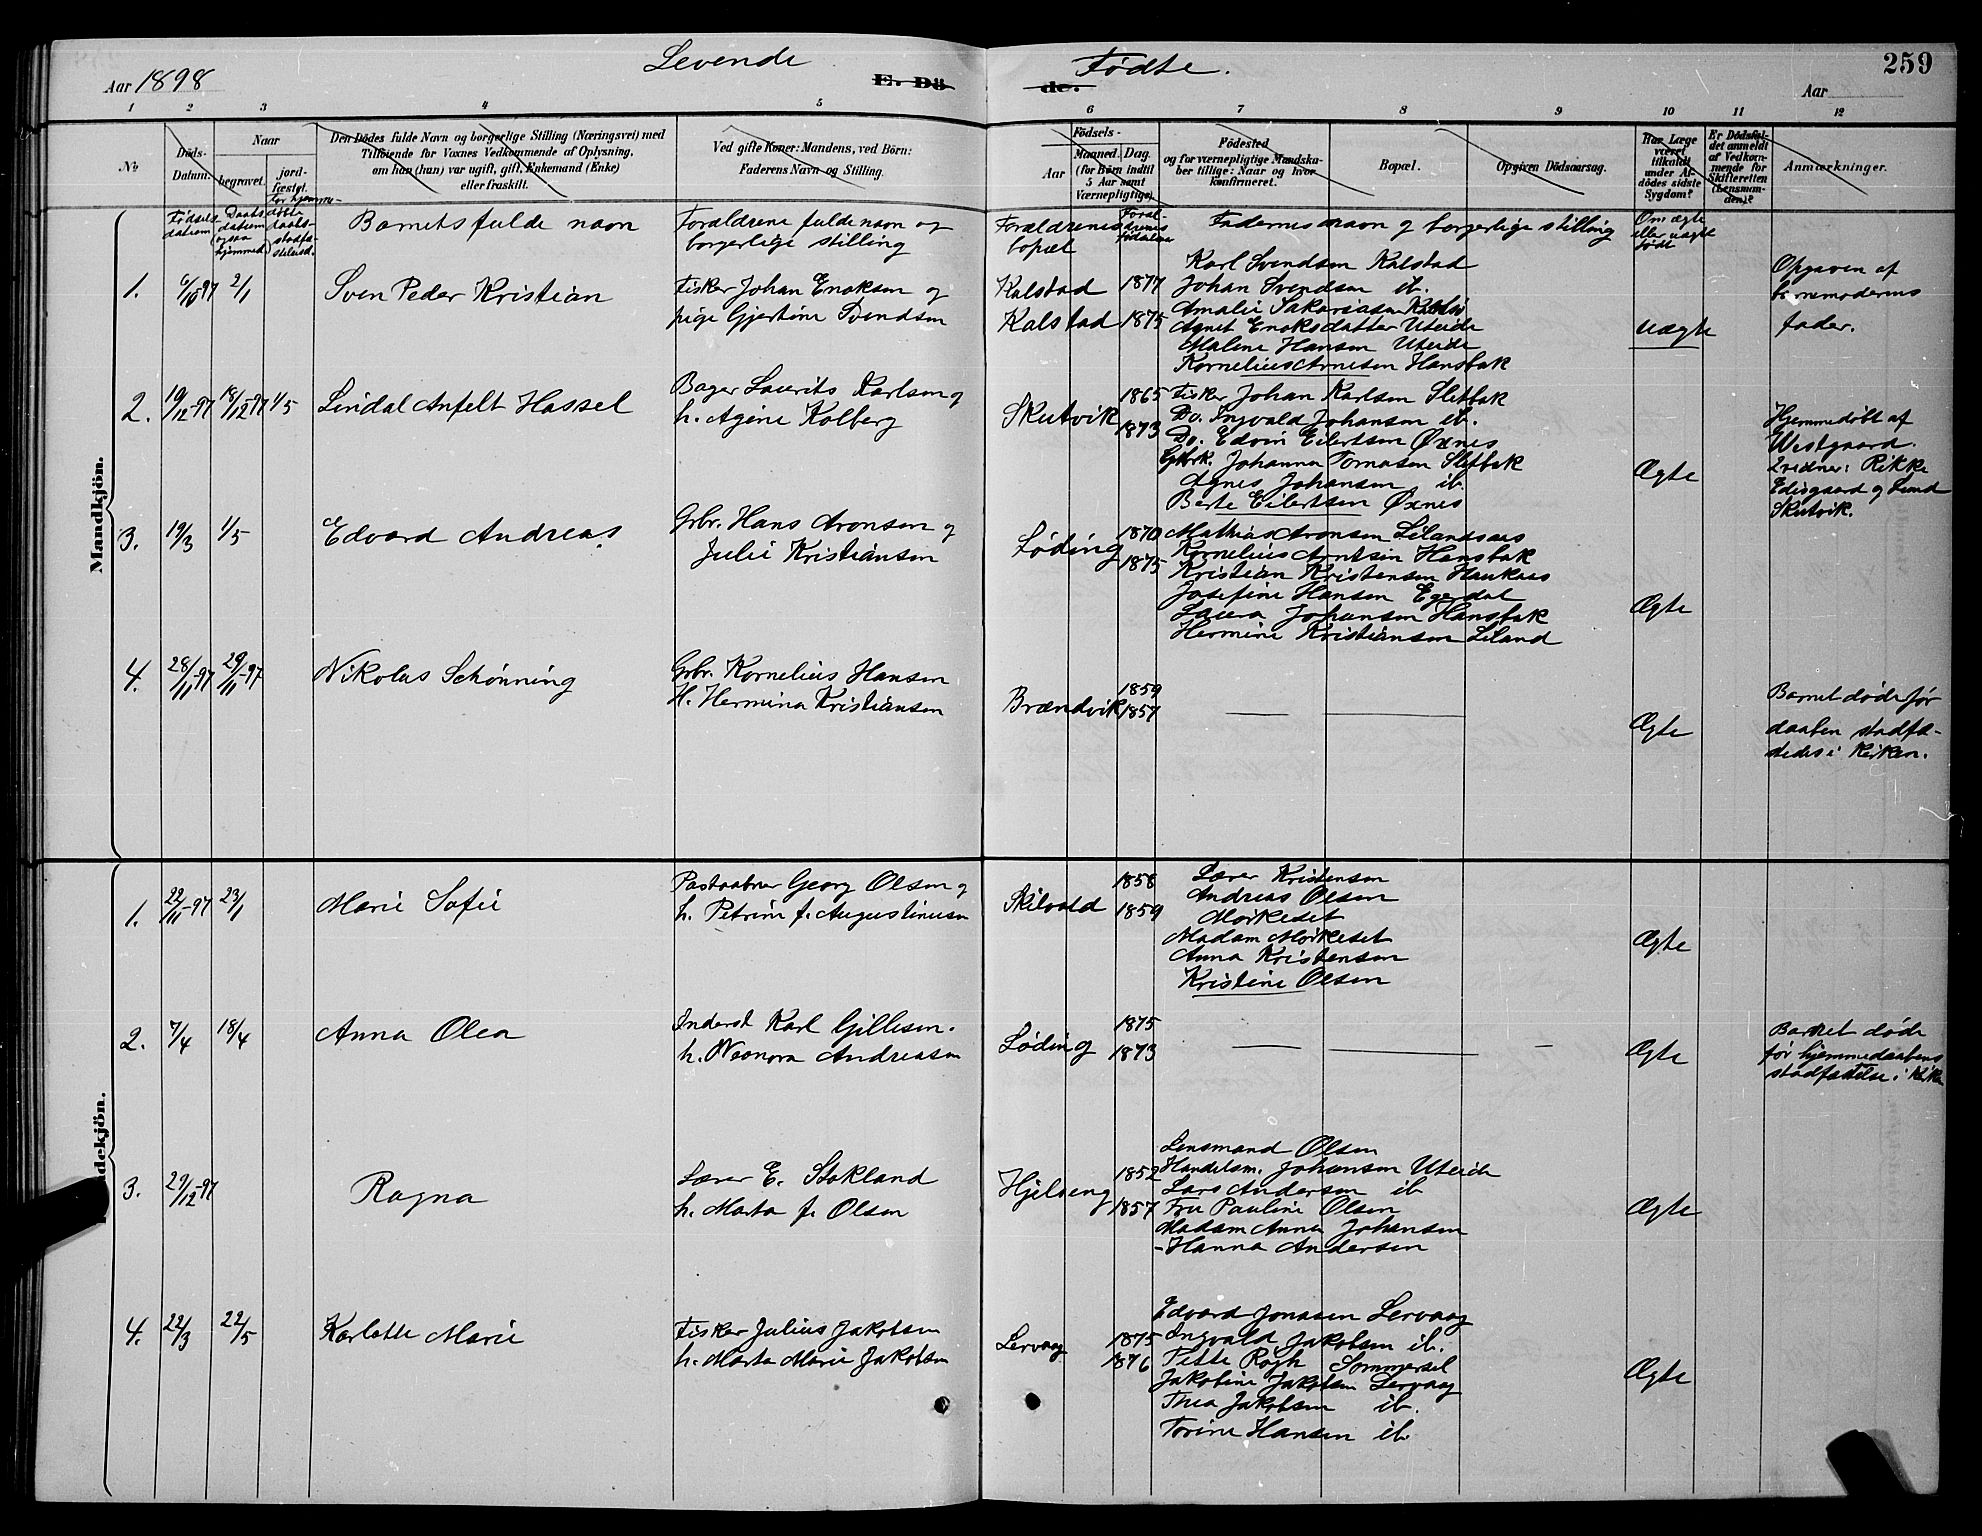 Levende Fødte.
259
Aar 1898
E. Dö de.
Aar
1 2 3 4 5 6 7 8 9 10 11 12
No
Döds-Datum.
Naar
begravet.
jord-fæstet.
Den Dödes fulde Navn og borgerlige Stilling (Næringsvei) med
Tilföiende for Voxnes Vedkommende af Oplysning,
om han (hun) var ugift, gift, Enkemand (Enke)
eller fraskilt.
Ved gifte Koner: Mandens, ved Börn:
Faderens Navn og Stilling.
Födsels-
Aar
Maaned. Dag.
(for Börn indtil
5 Aar samt
Værnepligtige).
Födested
og for værnepligtige Mandska-
ber tillige: Naar og hvor
konfirmeret.
Bopæl.
Opgiven Dödsaarsag.
Har Læge
været
tilkaldt
under Af-
dödes sidste
Sygdom?
Er Dödsfal-
det anmeldt
af Vedkom-
mende for
Skifteretten
(Lensman-
den)?
Anmærkninger.
Fødsels
datum
Daabs
datum
ogsaa
hjemmed
for hjemme-
døbt
daabs-
stadfæ-
stelsesd.
Barnets fulde navn
Forældrene fulde navn og
borgerlige stilling
Forældrenes
bopæl
Foræl-
drenes
fødselsaar
Faddernes navn og borgerlige stilling
Om ægte
eller uægte
født
Mandkjön.
1. 6/10 97 2/1 Sven Peder Kristian
Fisker Johan Enoksen og
pige Gjertine Svendsen
Kalstad 1877
Kalstad 1875
Karl Svendsen Kalstad
Johan Svendsen ib.
Amalie Sakariasen Kalstad
Agnet Enoksdatter Uteide
Malene Hansen Uteide
Kornelius Arntsen Hansbak
uægte
Opgaven af
barnemoderens
fader.
2. 19/12-97 18/12-97 1/5 Lindal Anfelt Hassel
Bager Laurits Karlsen og
h. Agine Kolberg
Skutvik 1865
1873
Fisker Johan Karlsen Sletbak
Do. Ingvald Johansen ib.
Do. Edvin Eilertsen Øxnes
Gbrk. Johanna Tomasen Sletbak
Agnes Johansen ib
Berte Eilertsen Øxnes
Ægte
Hjemmedøbt af
Westgaard.
2 vidner: Rikke
Edisgaard og Lund
Skutvik.
3. 19/3 1/5 Edvard Andreas
Grbr. Hans Aronsen og
Julie Kristiansen
Løding 1870
1875
Mathias Aronsen Lilandsaas
Kornelius Arntsin Hansbak
Kristian Kristensen Haukaas
Josefine Hansen Egerdal
Laura Johansen Hansbak
Hermine Kristiansen Liland
Ægte
4. 28/11-97 29/11-97 Nikolas Schønning
Grbr. Kornelius Hansen
H. Hermina Kristiansen
Brændvik 1859
1857
Ægte
Barnet døde før
daaben stadfæ-
stedes i kirken.
Kvindekjön.
1. 22/11-97 23/1 Marie Sofie
Postaabner Georg Olsen og
h. Petrine f. Augustinusen
Skilvold 1858
1859
Lærer Kristensen
Andreas Olsen
Morkeset
Madam Morkeset
Anna Kristensen
Kristine Olsen
Ægte
2. 7/4 18/4 Anna Olea
Inderst Karl Gillesen.
h. Noonora Andreasen
Løding 1875
1873
Ægte
Barnet døde
før hjemmedaabens
stadfæstelse i kirken
3. 29/12-97 Ragna
Lærer E. Stokland
h. Marta f. Olsen
Hjelseng 1852
1857
Lensmand Olsen
Handelsm. Johansen Uteide
Lars Andersen ib
Fru Pauline Olsen
Madam Anna Johansen
– Hanna Andersen
Ægte
4. 22/3 22/5 Karlotte Marie
Fisker Julius Jakobsen
h. Marta Marie Jakobsen
Lervaag 1875
1876
Edvard Jonasen Lervaag
Ingvald Jakobsen ib.
Pette Rogh Sommersel
Jakobine Jakobsen Lervaag
Thea Jakobsen ib.
Torine Hansen ib.
Ægte